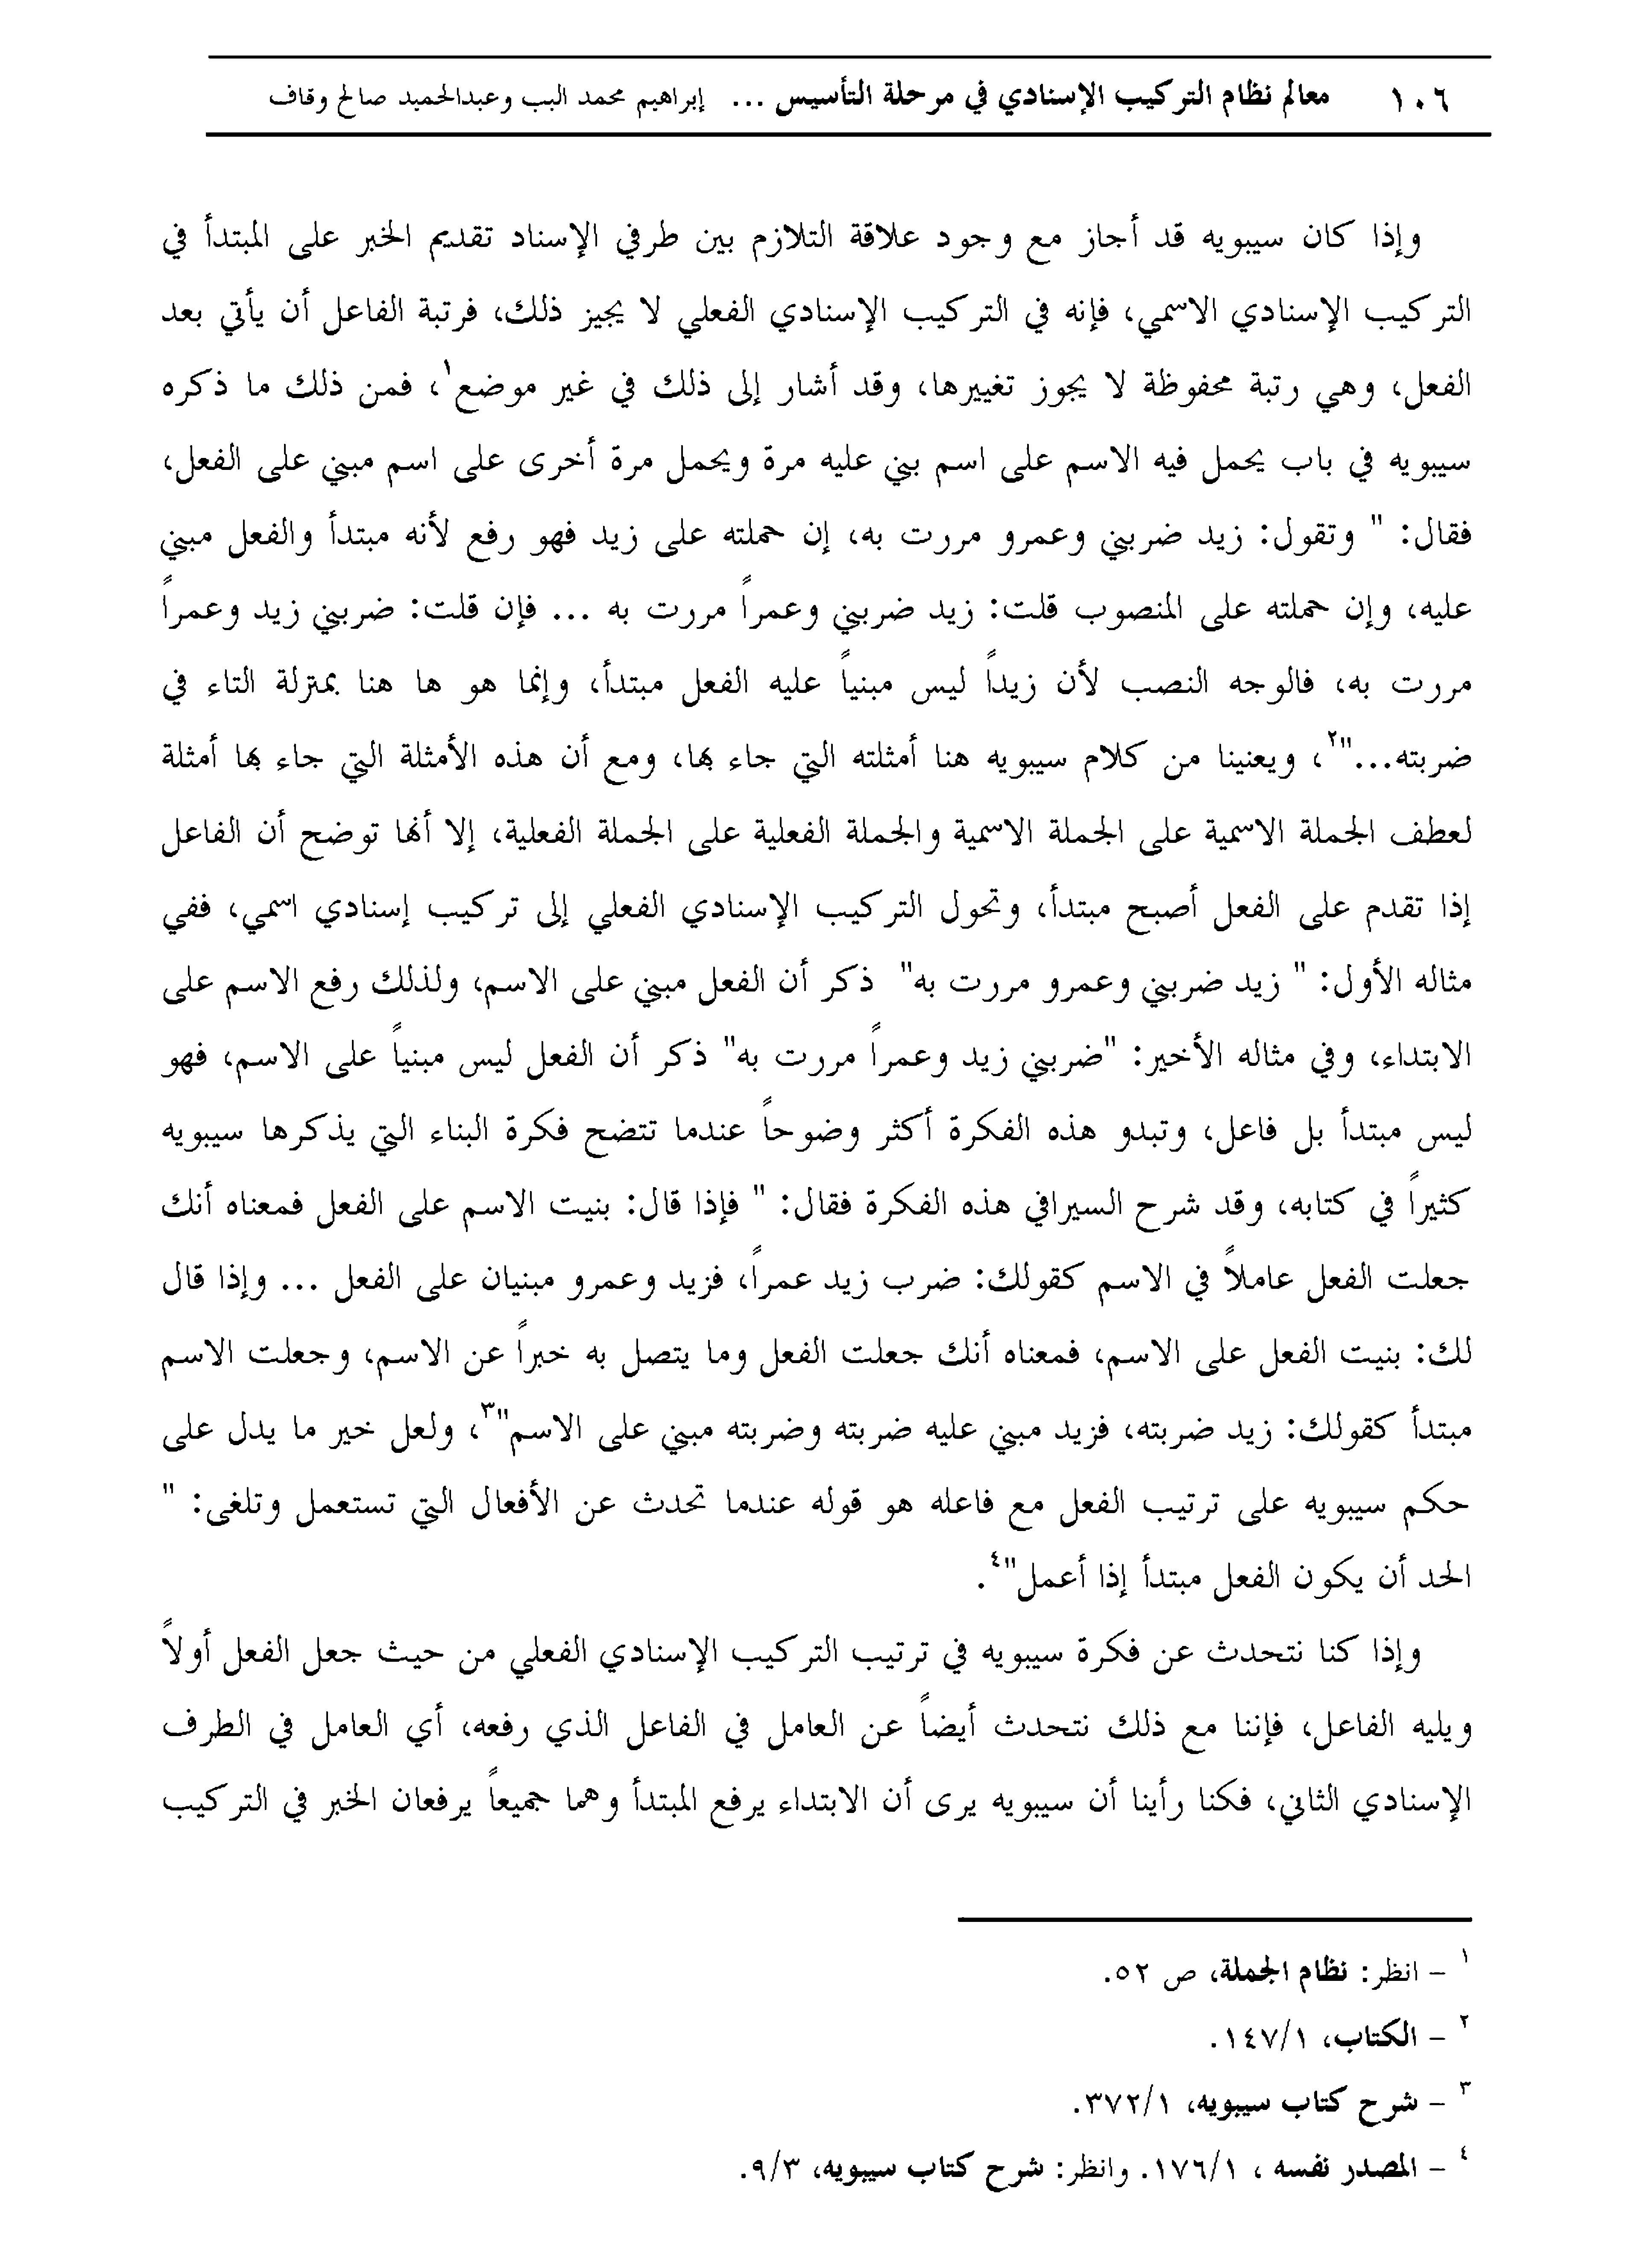 ١٠٦ معالم نظام التركيب الإسنادي في مرحلة التأسيس ... إبراهيم محمد البب وعبدالحميد صالح وقاف
وإذا كان سيبويه قد أجاز مع وجود علاقة التلازم بين طرفي الإسناد تقديم الخبر على المبتدأ في
التركيب الإسنادي الاسمي، فإنه في التركيب الإسنادي الفعلي لا يجيز ذلك، فرتبة الفاعل أن يأتي بعد
الفعل، وهي رتبة محفوظة لا يجوز تغييرها، وقد أشار إلى ذلك في غير موضع١، فمن ذلك ما ذكره
سيبويه في باب يحمل فيه الاسم على اسم بني عليه مرة ويحمل مرة أخرى على اسم مبني على الفعل،
فقال: " وتقول: زيد ضربني وعمرو مررت به، إن حملته على زيد فهو رفع لأنه مبتدأ والفعل مبني
عليه، وإن حملته على المنصوب قلت: زيد ضربني وعمراً مررت به ... فإن قلت: ضربني زيد وعمراً
مررت به، فالوجه النصب لأن زيداً ليس مبنياً عليه الفعل مبتدأ، وإنما هو ها هنا بمنزلة التاء في
ضربته..."٢، ويعنينا من كلام سيبويه هنا أمثلته التي جاء بها، ومع أن هذه الأمثلة التي جاء بها أمثلة
لعطف الجملة الاسمية على الجملة الاسمية والجملة الفعلية على الجملة الفعلية، إلا أنها توضح أن الفاعل
إذا تقدم على الفعل أصبح مبتدأ، وتحول التركيب الإسنادي الفعلي إلى تركيب إسنادي اسمي، ففي
مثاله الأول: " زيد ضربني وعمرو مررت به" ذكر أن الفعل مبني على الاسم، ولذلك رفع الاسم على
الابتداء، وفي مثاله الأخير: "ضربني زيد وعمراً مررت به" ذكر أن الفعل ليس مبنياً على الاسم، فهو
ليس مبتدأ بل فاعل، وتبدو هذه الفكرة أكثر وضوحاً عندما تتضح فكرة البناء التي يذكرها سيبويه
كثيراً في كتابه، وقد شرح السيرافي هذه الفكرة فقال: " فإذا قال: بنيت الاسم على الفعل فمعناه أنك
جعلت الفعل عاملاً في الاسم كقولك: ضرب زيد عمراً، فزيد وعمرو مبنيان على الفعل ... وإذا قال
لك: بنيت الفعل على الاسم، فمعناه أنك جعلت الفعل وما يتصل به خبراً عن الاسم، وجعلت الاسم
مبتدأ كقولك: زيد ضربته، فزيد مبني عليه ضربته وضربته مبني على الاسم"٣، ولعل خير ما يدل على
حكم سيبويه على ترتيب الفعل مع فاعله هو قوله عندما تحدث عن الأفعال التي تستعمل وتلغى: "
الحد أن يكون الفعل مبتدأ إذا أعمل"٤.
وإذا كنا نتحدث عن فكرة سيبويه في ترتيب التركيب الإسنادي الفعلي من حيث جعل الفعل أولاً
ويليه الفاعل، فإننا مع ذلك نتحدث أيضاً عن العامل في الفاعل الذي رفعه، أي العامل في الطرف
الإسنادي الثاني، فكنا رأينا أن سيبويه يرى أن الابتداء يرفع المبتدأ وهما جميعاً يرفعان الخبر في التركيب
١ – انظر: نظام الجملة، ص ٥٢.
٢ – الكتاب، ١٤٧/١.
٣ – شرح كتاب سيبويه، ٣٧٢/١.
٤ – المصدر نفسه ، ١٧٦/١. وانظر: شرح كتاب سيبويه، ٩/٣.